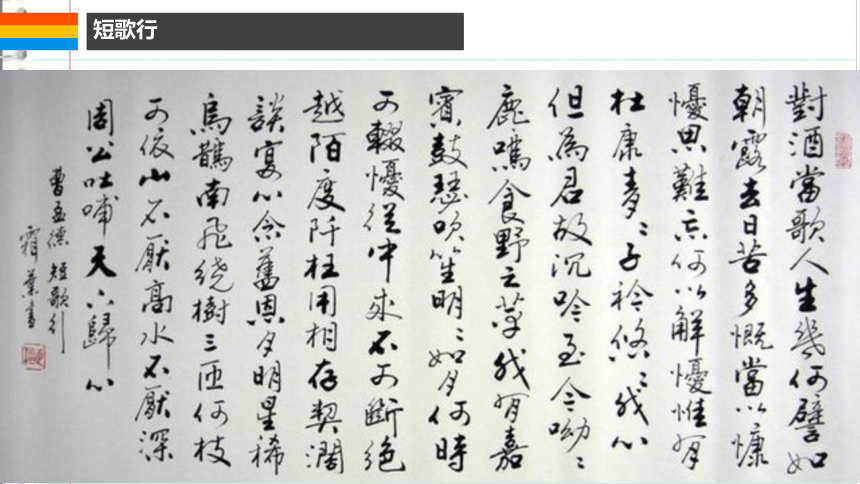 短歌行
對酒當歌人生幾何譬如
朝露去日苦多慨當以慷
懮思難忘何以解懮惟有
杜康青〻子衿悠〻我心
但為君故沉吟至今呦〻
鹿鳴食野之苹我有嘉
賓鼓瑟吹笙明〻如月何時
可輟懮從中來不可斷絕
越陌度阡枉用相存契闊
談宴心念舊恩月明星稀
烏鵲南飛繞樹三匝何枝
可依山不厭高水不厭深
周公吐哺天下歸心
曹孟德短歌行
霜葉書